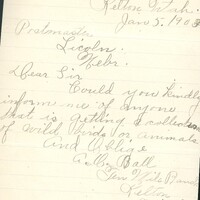 Kelton Utah.
Jan 5. 1908
Postmaster
Lincoln.
Nebr.
Dear Sir
Could you kindly
inform me of anyone
that is getting a collection
of wild birds or animals
and Oblige
Ball
Kelton